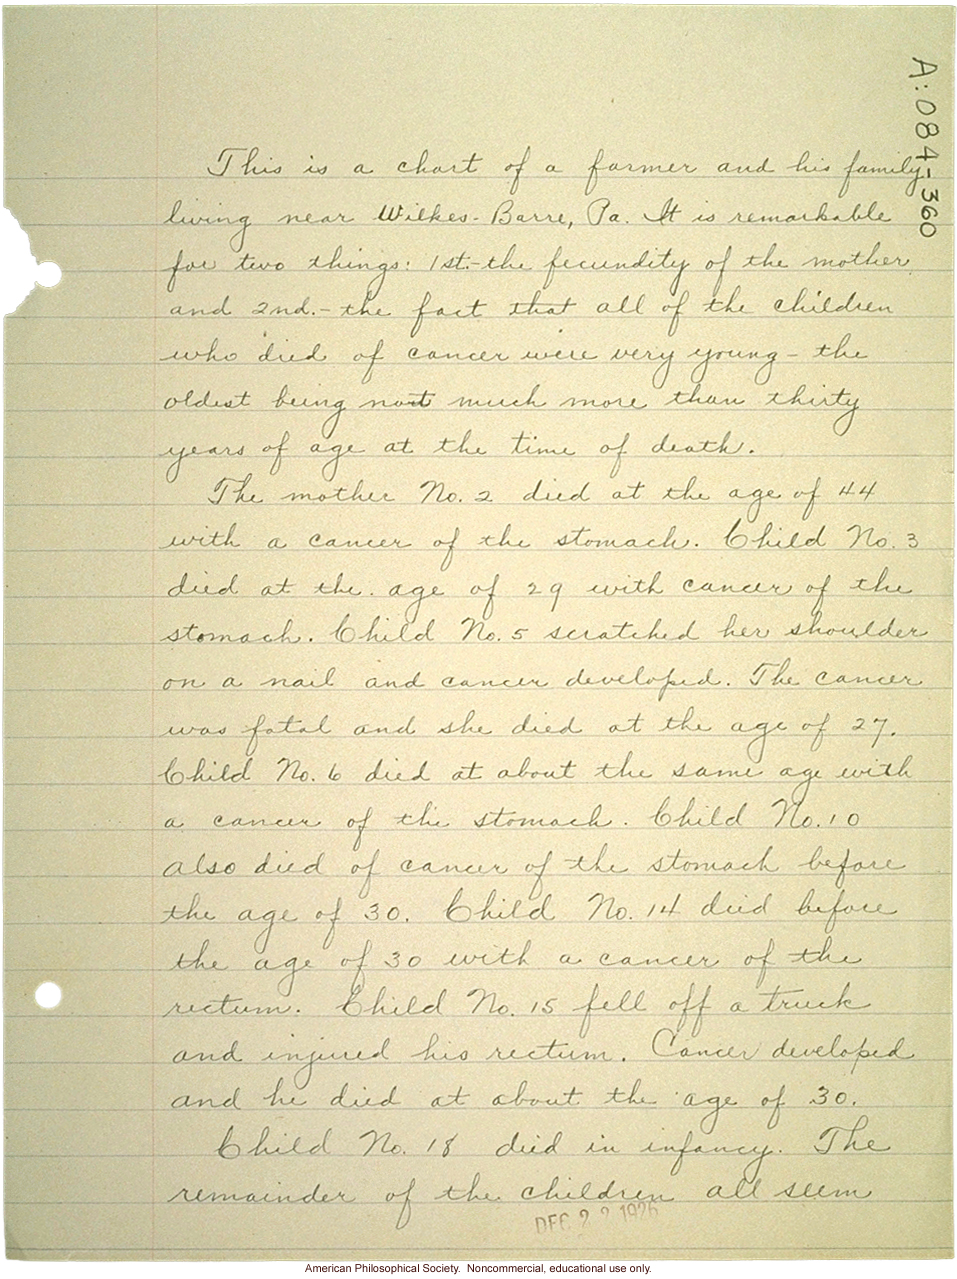 A:084-360
This is a chart of a farmer and his family
living near Wilkes-Barre, Pa. It is remarkable
for two things: 1st.-the fecundity of the mother
and 2nd.- the fact that all of the children
who died of cancer were very young - the
oldest being not much more than thirty
years of age at the time of death.
The mother No. 2 died at the age of 44
with a cancer of the stomach. Child No. 3
died at the age of 29 with cancer of the
stomach. Child No. 5 scratched her shoulder
on a nail and cancer developed. The cancer
was fatal and she died at the age of 27.
Child No. 6 died at about the same age with
a cancer of the stomach. Child No. 10
also died of cancer of the stomach before
the age of 30. Child No. 14 died before
the age of 30 with a cancer of the
rectum. Child No. 15 fell off a truck
and injured his rectum. Cancer developed
and he died at about the age of 30.
Child No. 18 died in infancy. The
remainder of the children all seem
DEC 22 1926
American Philosophical Society. Noncommercial, educational use only.